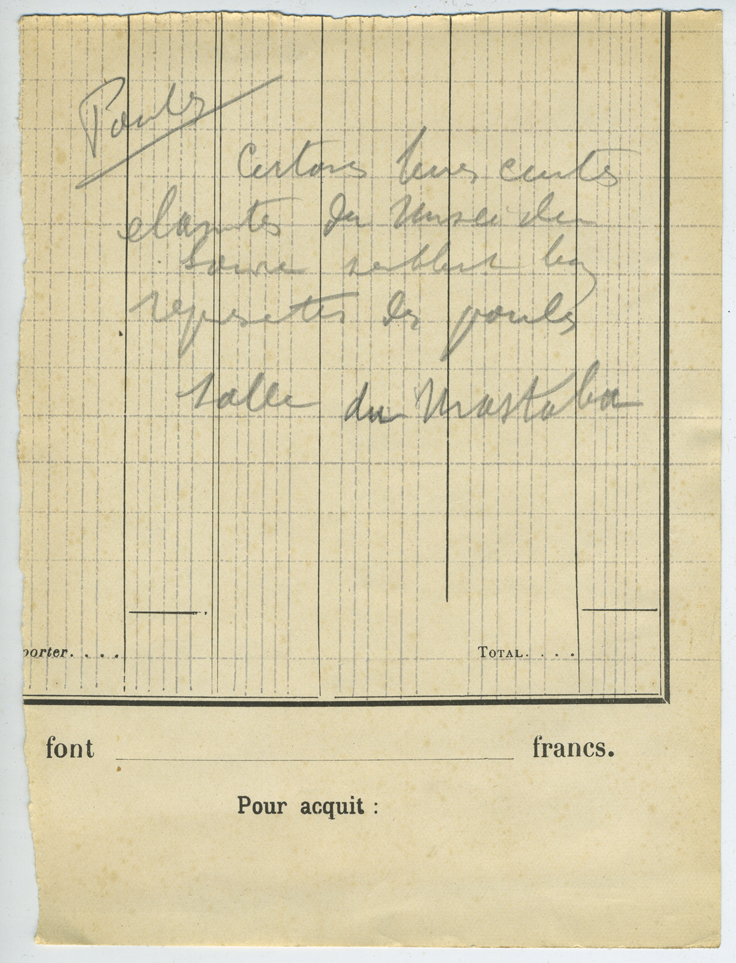 Poules
Certains terres cuites
du Musée du
semblent bien
représenter des poules
Salle du Mastaba
porter. . . .
TOTAL. . . .
font francs.
Pour acquit :